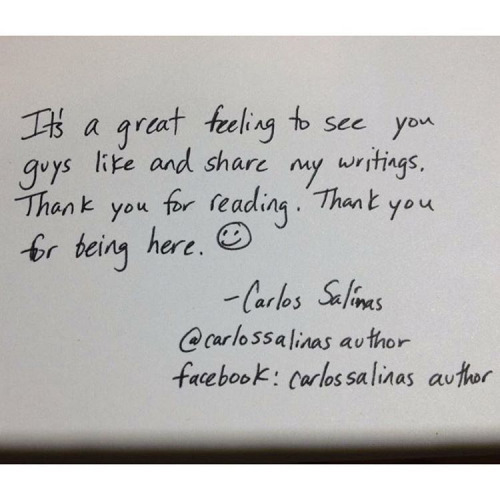 It's a great feeling to see you
guys like and share my writings.
Thank you for reading. Thank you
for being here. ☺
-Carlos Salinas
@carlossalinas author
facebook: carlossalinas author